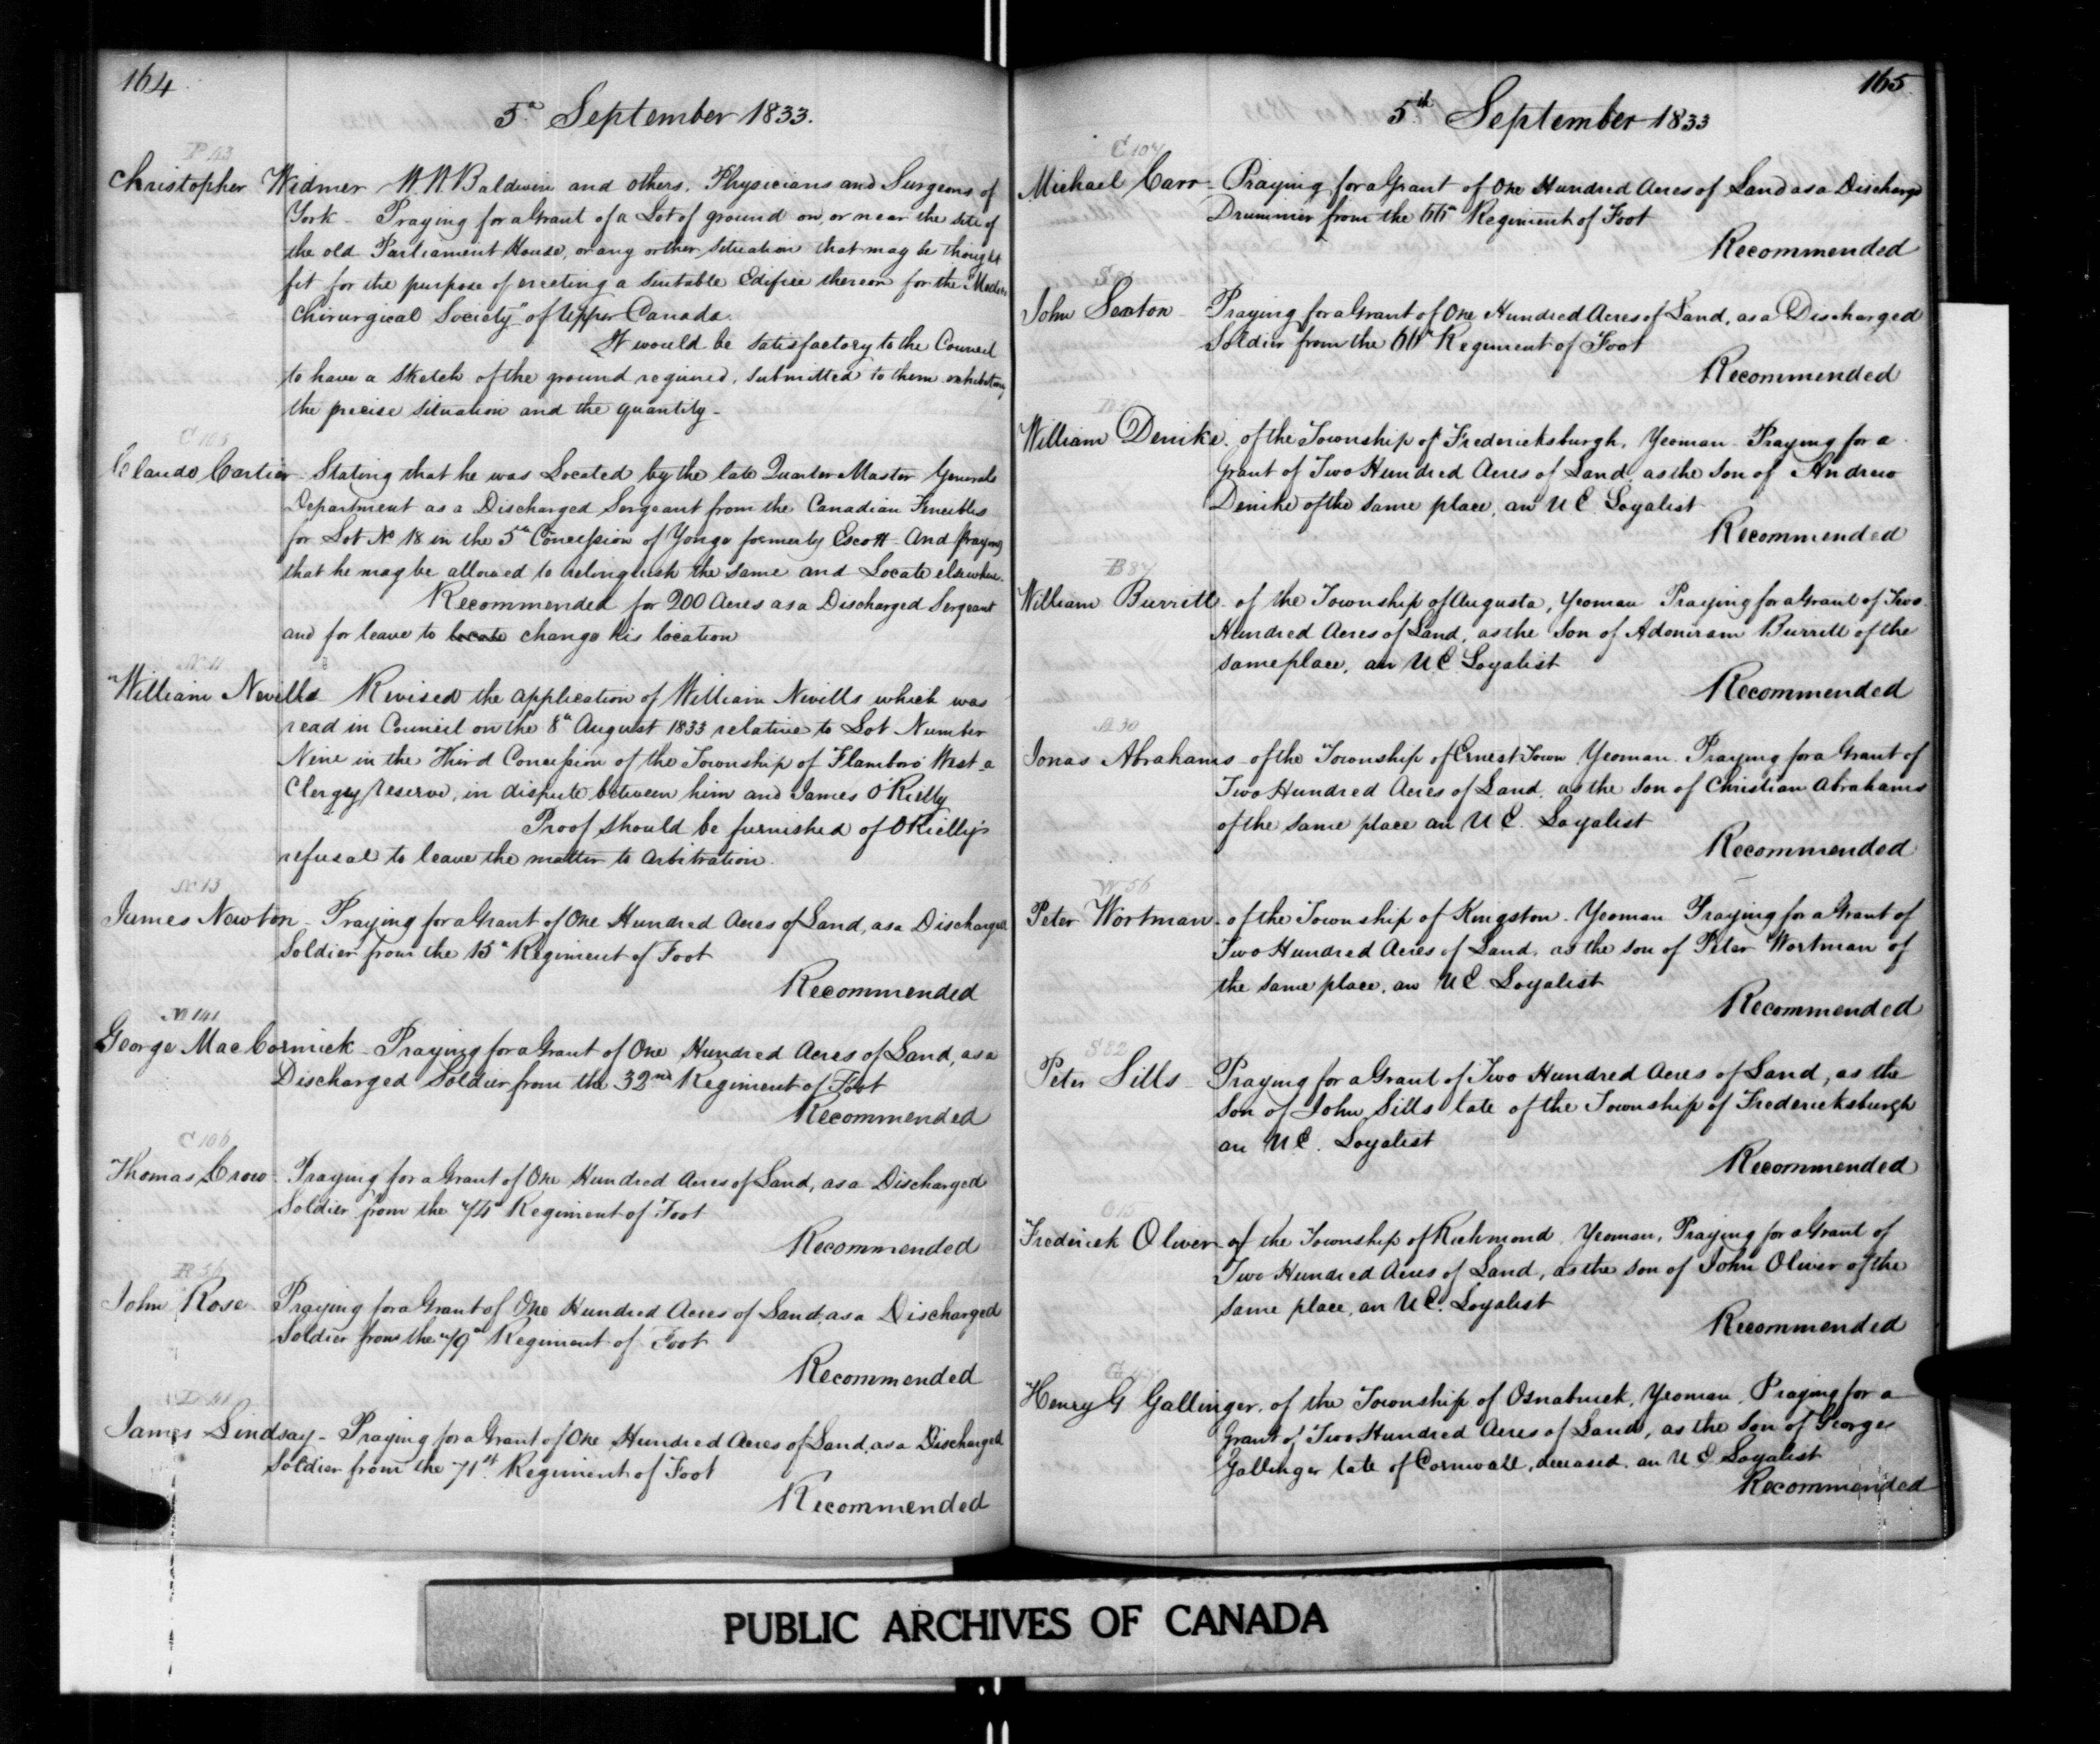 164
5th September 1833.
P 43
Christopher Widmer W. W. Baldwin and others, Physicians and Surgeons of
York - Praying for a Grant of a Lot of ground on, or near the site of
the old Parliament House, or any other situation that may be thought
fit for the purpose of erecting a suitable Edifice thereon for the "Medico
Chirurgical Society" of Upper Canada.
It would be satisfactory to the Council
to have a Sketch of the ground required, submitted to them exhibiting
the precise situation and the quantity -
C 105
Claude Cartier - Stating that he was Located by the late Quarter Master Generals
Department as a Discharged Sergeant from the Canadian Fencibles
for Lot No 18 in the 5th Concession of Yonge formerly Escott - And praying
that he may be allowed to relinquish the same and Locate elsewhere.
Recommended for 200 Acres as a Discharged Sergeant
and for leave to locate change his location
N 11
William Nevills Revised the application of William Nevills which was
read in Council on the 8th August 1833 relative to Lot Number
Nine in the Third Concession of the Township of Flamboro' West a
Clergy Reserve, in dispute between him and James O'Rielly
Proof should be furnished of O'Rielly's
refusal to leave the matter to Arbitration.
N 13
James Newton - Praying for a Grant of One Hundred Acres of Land, as a Discharged
Soldier from the 15th Regiment of Foot
Recommended
M 141
George MacCormick - Praying for a Grant of One Hundred Acres of Land, as a
Discharged Soldier from the 32nd Regiment of Foot
Recommended
C 106
Thomas Crow - Praying for a Grant of One Hundred Acres of Land, as a Discharged
Soldier from the 74th Regiment of Foot
Recommended
R 36
John Rose Praying for a Grant of One Hundred Acres of Land, as a Discharged
Soldier from the 79th Regiment of Foot
Recommended
L 41
James Lindsay - Praying for a Grant of One Hundred Acres of Land, as a Discharged
Soldier from the 71st Regiment of Foot
Recommended
165
5th September 1833
C 107
Michael Carr - Praying for a Grant of One Hundred Acres of Land as a Discharged
Drummer from the 66th Regiment of Foot
Recommended
John Sexton - Praying for a Grant of One Hundred Acres of Land, as a Discharged
Soldier from the 66th Regiment of Foot
Recommended
William Denike - of the Township of Fredericksburgh, Yeoman - Praying for a
Grant of Two Hundred Acres of Land, as the Son of Andrew
Denike of the same place, an U E Loyalist
Recommended
B 87
William Burritt - of the Township of Augusta, Yeoman Praying for a Grant of Two
Hundred Acres of Land, as the Son of Adoniram Burritt of the
same place, an U. E. Loyalist
Recommended
A 30
Jonas Abrahams - of the Township of Ernest Town Yeoman. Praying for a Grant of
Two Hundred Acres of Land, as the Son of Christian Abrahams
of the same place an U E. Loyalist
Recommended
W 56
Peter Wortman - of the Township of Kingston - Yeoman Praying for a Grant of
Two Hundred Acres of Land, as the son of Peter Wortman of
the same place, an U E Loyalist
Recommended
S 82
Peter Sills - Praying for a Grant of Two Hundred Acres of Land, as the
Son of John Sills late of the Township of Fredericksburgh
an U. E. Loyalist
Recommended
O 15
Frederick Oliver - of the Township of Richmond, Yeoman, Praying for a Grant of
Two Hundred Acres of Land, as the Son of John Oliver of the
same place, an U E. Loyalist
Recommended
Henry G Gallinger, of the Township of Osnabruck, Yeoman, Praying for a
Grant of Two Hundred Acres of Land, as the Son of George
Gallinger late of Cornwall, deceased, an U. E Loyalist
Recommended
PUBLIC ARCHIVES OF CANADA